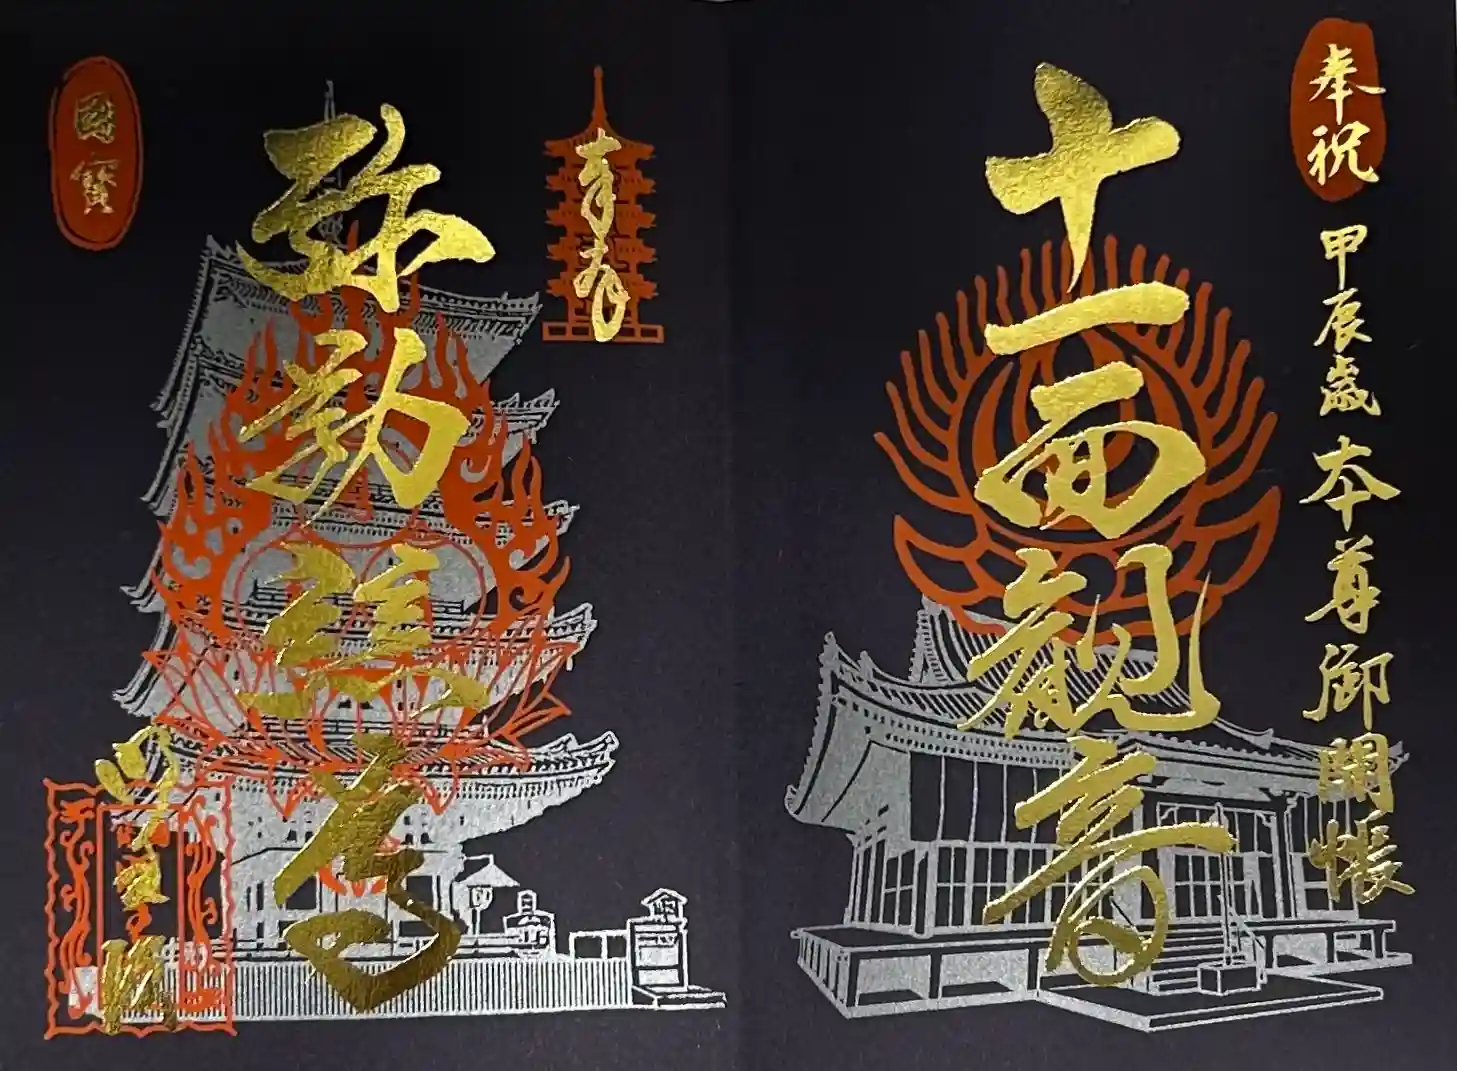 奉祝
甲辰歳 本尊御開帳
十一面観音
奉拝
弥勒
國寶
明王院